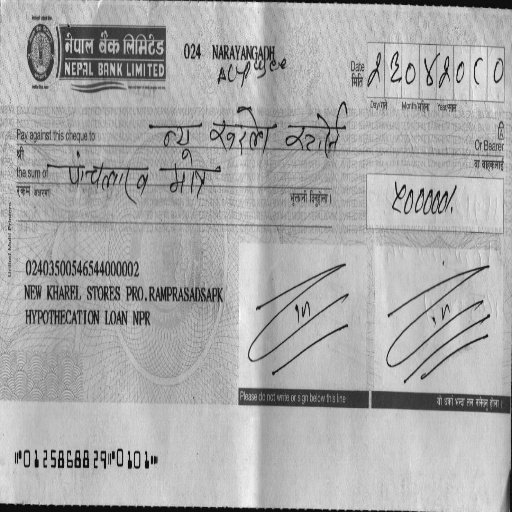 नेपाल बैंक लिमिटेड
NEPAL BANK LIMITED
024 NARAYANGADH
A/C Payee
Date मिति २३०४२०८०
Day गते Month महिना Year साल
Pay against this cheque to न्यू खरेल स्टोर्स Or Bearer
श्री वा वाहकलाई
the sum of पाँचलाख मात्र
रकम भुक्तानी दिनुहोला ।
५०००००/.
02403500546544000002
NEW KHAREL STORES PRO.RAMPRASADSAPK
HYPOTHECATION LOAN NPR
Please do not write or sign below this line
यो धर्का भन्दा तल नलेख्नु होला ।
⑈0125868829⑈0101⑈